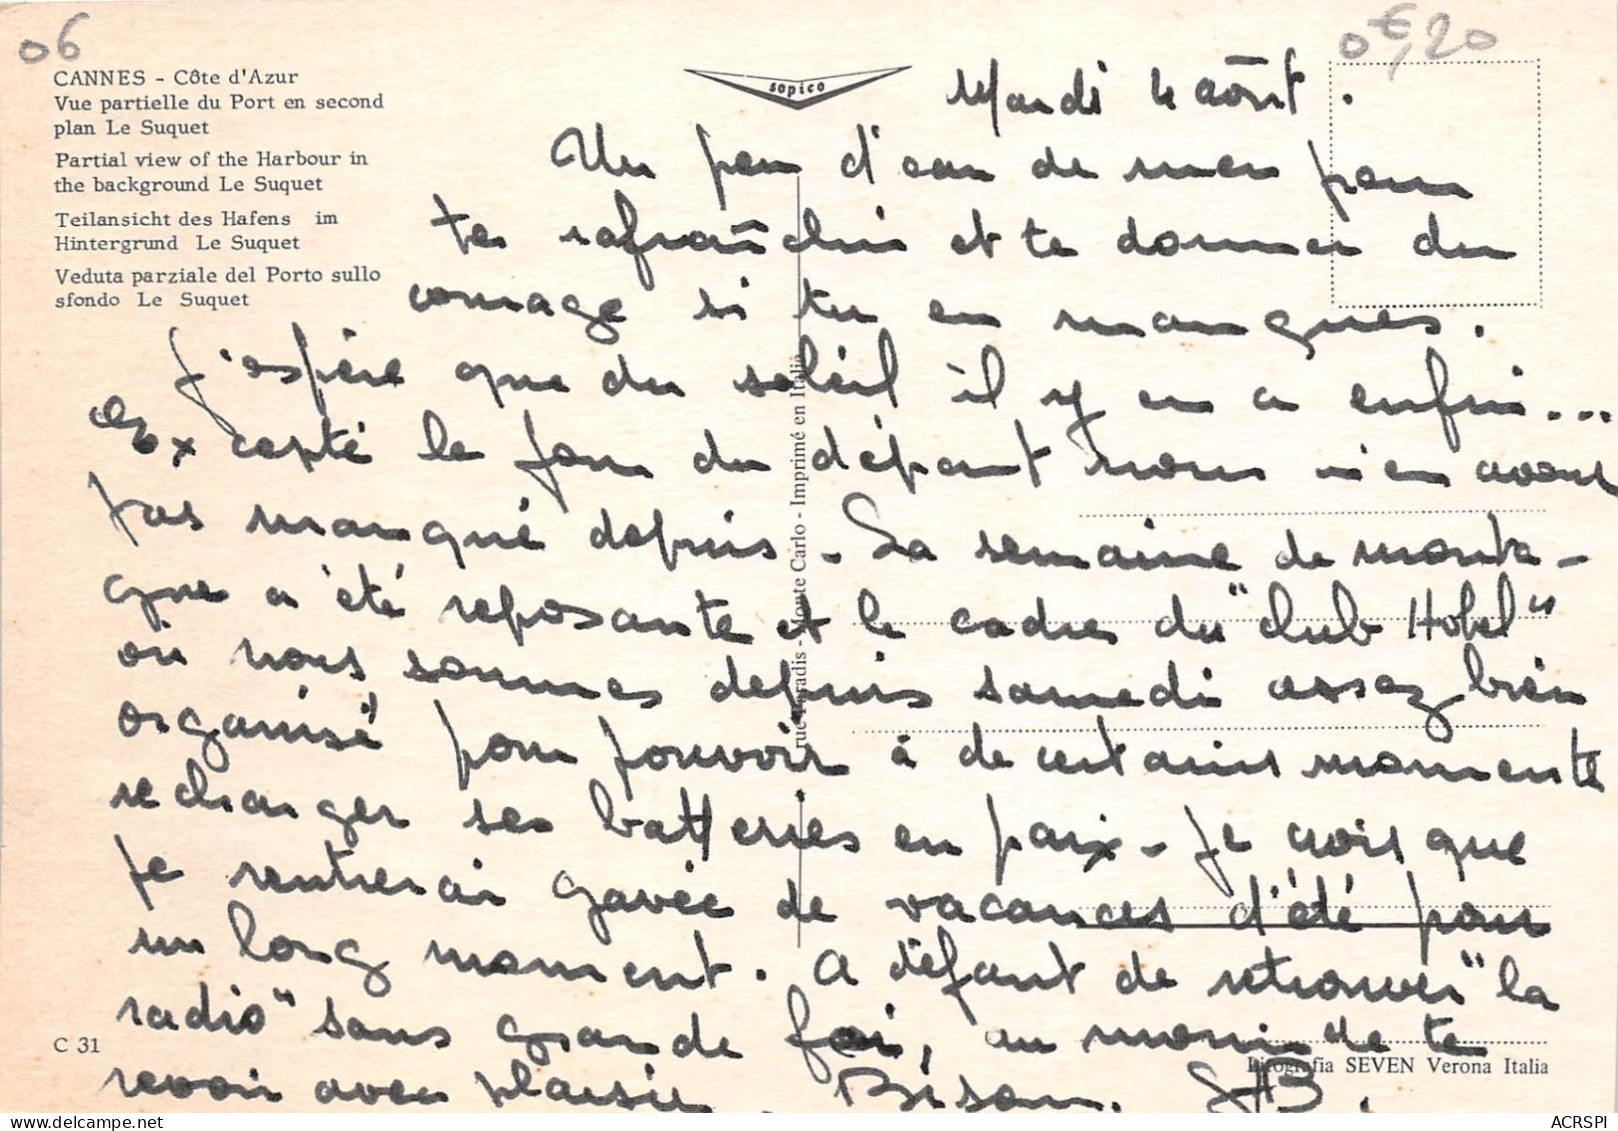 06
0€,20
CANNES - Côte d'Azur
Vue partielle du Port en second
plan Le Suquet
Partial view of the Harbour in
the background Le Suquet
Teilansicht des Hafens im
Hintergrund Le Suquet
Veduta parziale del Porto sullo
sfondo Le Suquet
sopico
Mardi 4 août.
Un peu d'eau de mer pour
te rafraîchir et te donner du
courage si tu en manques.
J'espère que du soleil il y en a enfin...
Excepté le jour du départ nous n'en avons
pas manqué depuis - La semaine de monta-
gne a été reposante et le cadre du "Club Hotel"
où nous sommes depuis samedi assez bien
organisé pour pouvoir à de certains moments
recharger ses batteries en paix - Je crois que
je rentrerai gavée de vacances d'été pour
un long moment. A défaut de retrouver "la
radio" sans grande foi, au moins de te
revoir avec plaisir. Bisous.
rue Paradis - Monte Carlo - Imprimé en Italie
C 31
Litografia SEVEN Verona Italia
ACRSPI